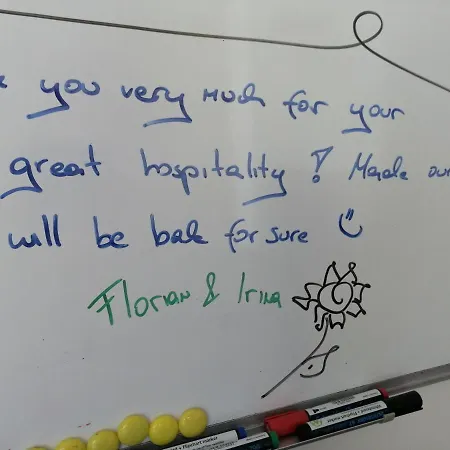 you very much for your
great hospitality! Made our
will be bak for sure
Florian & Irina